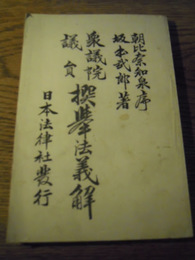 朝比奈知泉序
坂本武郎著
衆議院
議員
撰挙法義解
日本法律社發行